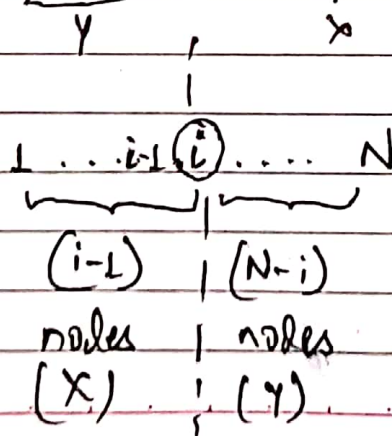 Y X
1 . . . . i-1 i . . . . N
(i-1) (N-i)
nodes nodes
(X) (Y)